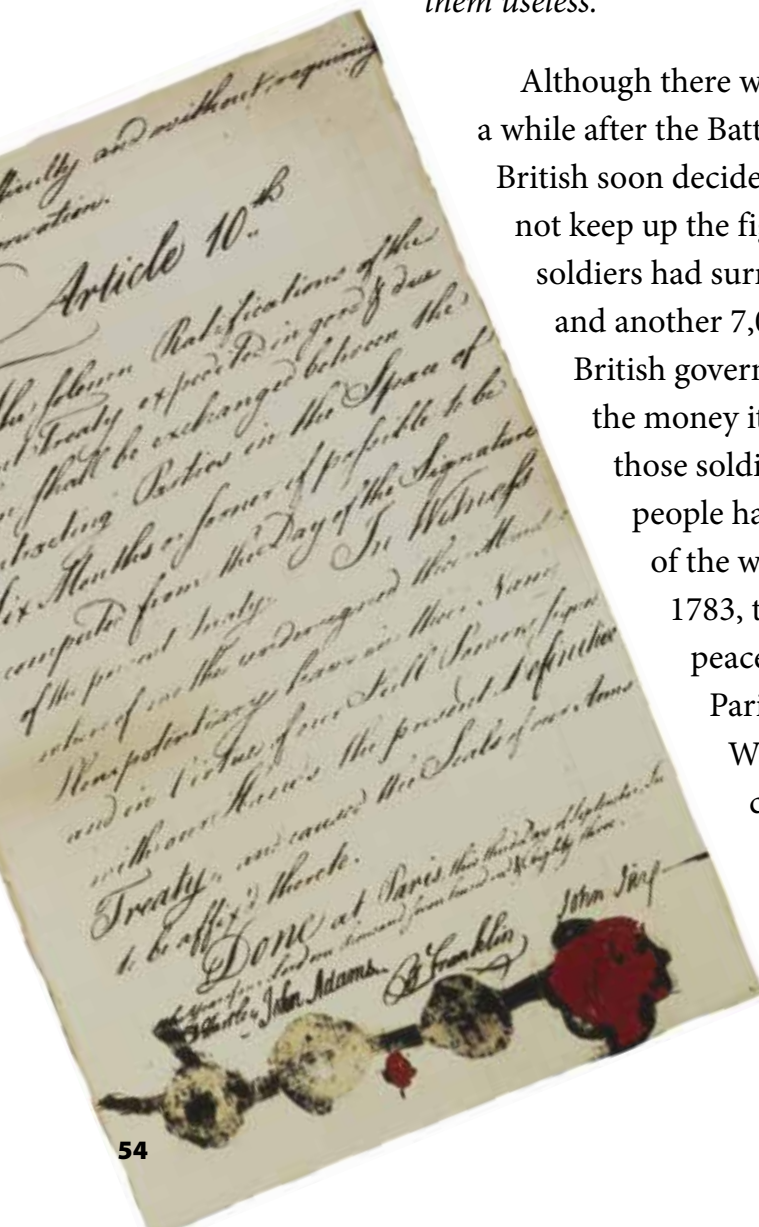 them useless.
Although there w
a while after the Batt
British soon decide
not keep up the fig
soldiers had surr
and another 7,0
British govern
the money it
those soldi
people ha
of the w
1783, t
peace
Pari
W
c
ficulty and without requiring
Article 10.th
solemn Ratifications of the
Treaty expedited in good & due
shall be exchanged between the
Parties in the Space of
Six Months or sooner if possible to be
computed from the Day of the Signature
of the present Treaty. In Witness
whereof we the undersigned their
Plenipotentiary have in their Name
and in Virtue of our Full Powers signed
with our Hands the present Definitive
Treaty, and caused the Seals of our Arms
to be affix'd thereto.
Done at Paris, this third Day of September, In
thousand seven hundred & eighty three.
D Hartley John Adams B Franklin John Jay
54